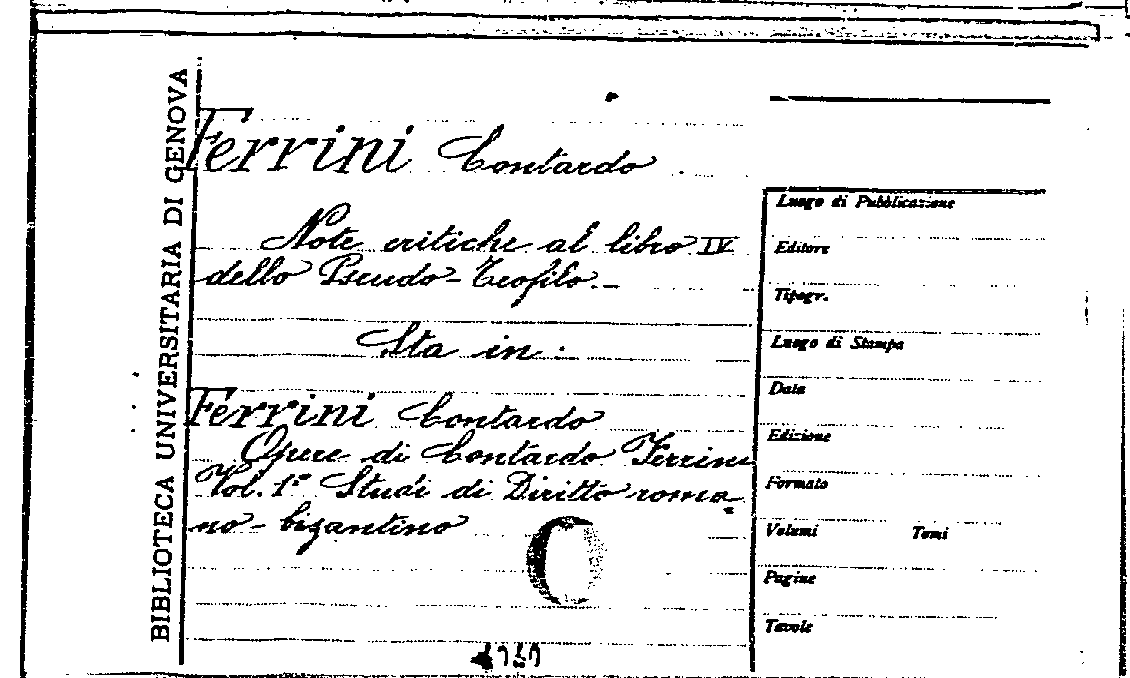 BIBLIOTECA UNIVERSITARIA DI GENOVA
Ferrini Contardo
Note critiche al libro IV
dello Pseudo-Teofilo.-
Sta in:
Ferrini Contardo
Opere di Contardo Ferrini
Vol. 1° Studi di Diritto roma-
no-bizantino
Luogo di Pubblicazione
Editore
Tipogr.
Luogo di Stampa
Data
Edizione
Formato
Volumi Tomi
Pagine
Tavole